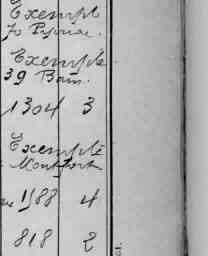 Exempt
Exempte
39 Bain.
1304 3
Exempte
Montfort
1988 4
818 2